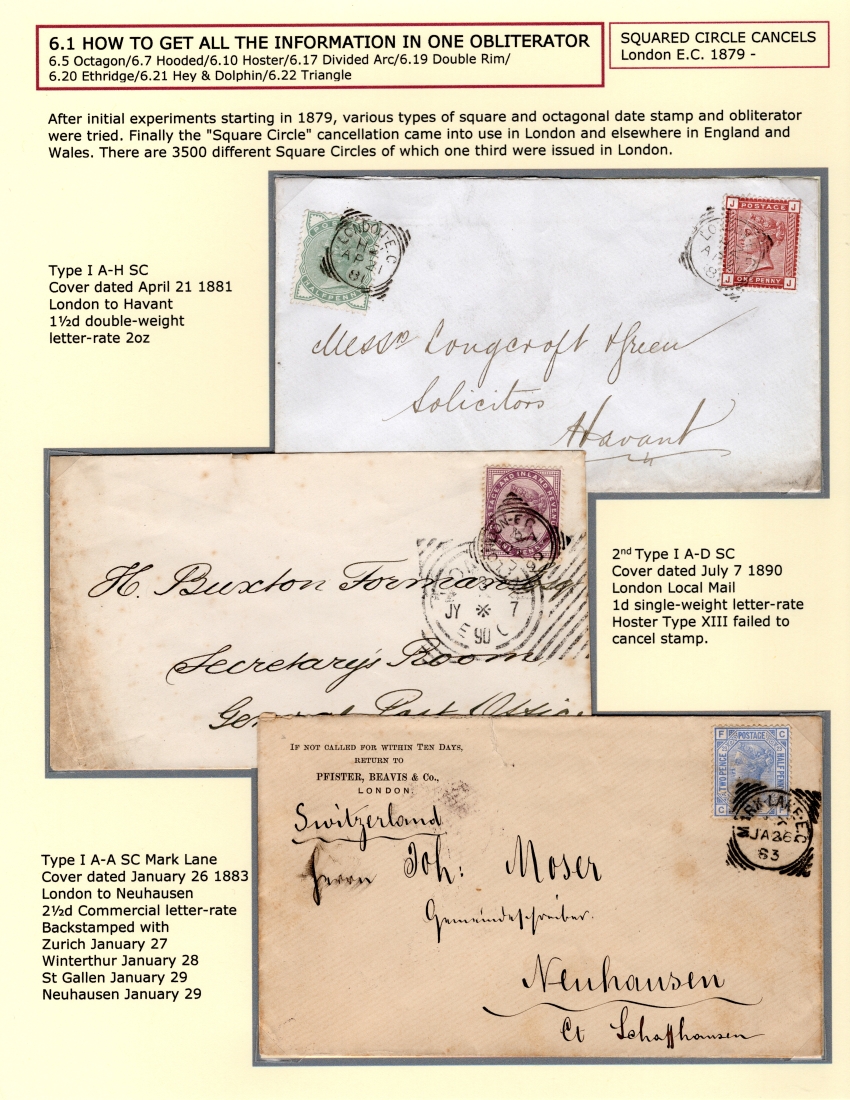 6.1 HOW TO GET ALL THE INFORMATION IN ONE OBLITERATOR
6.5 Octagon/6.7 Hooded/6.10 Hoster/6.17 Divided Arc/6.19 Double Rim/
6.20 Ethridge/6.21 Hey & Dolphin/6.22 Triangle
SQUARED CIRCLE CANCELS
London E.C. 1879 -
After initial experiments starting in 1879, various types of square and octagonal date stamp and obliterator
were tried. Finally the "Square Circle" cancellation came into use in London and elsewhere in England and
Wales. There are 3500 different Square Circles of which one third were issued in London.
Type I A-H SC
Cover dated April 21 1881
London to Havant
1½d double-weight
letter-rate 2oz
HALFPENNY
LONDON-E.C
H
AP 21
81
POSTAGE
J J
J J
ONE PENNY
Messrs Longcroft & Green
Solicitors
Havant
POSTAGE AND INLAND REVENUE
LONDON-E.C
H. Buxton Forman Esq
JY 7
90
Secretary's Room
General Post Office
2nd Type I A-D SC
Cover dated July 7 1890
London Local Mail
1d single-weight letter-rate
Hoster Type XIII failed to
cancel stamp.
IF NOT CALLED FOR WITHIN TEN DAYS,
RETURN TO
PFISTER, BEAVIS & Co.,
LONDON.
F POSTAGE C
TWO PENCE HALF PENNY
C
MARK-LANE-E.C
X
JA 26
83
Switzerland
Herrn Joh: Moser
Gemeindeschreiber.
Neuhausen
Ct Schaffhausen
Type I A-A SC Mark Lane
Cover dated January 26 1883
London to Neuhausen
2½d Commercial letter-rate
Backstamped with
Zurich January 27
Winterthur January 28
St Gallen January 29
Neuhausen January 29